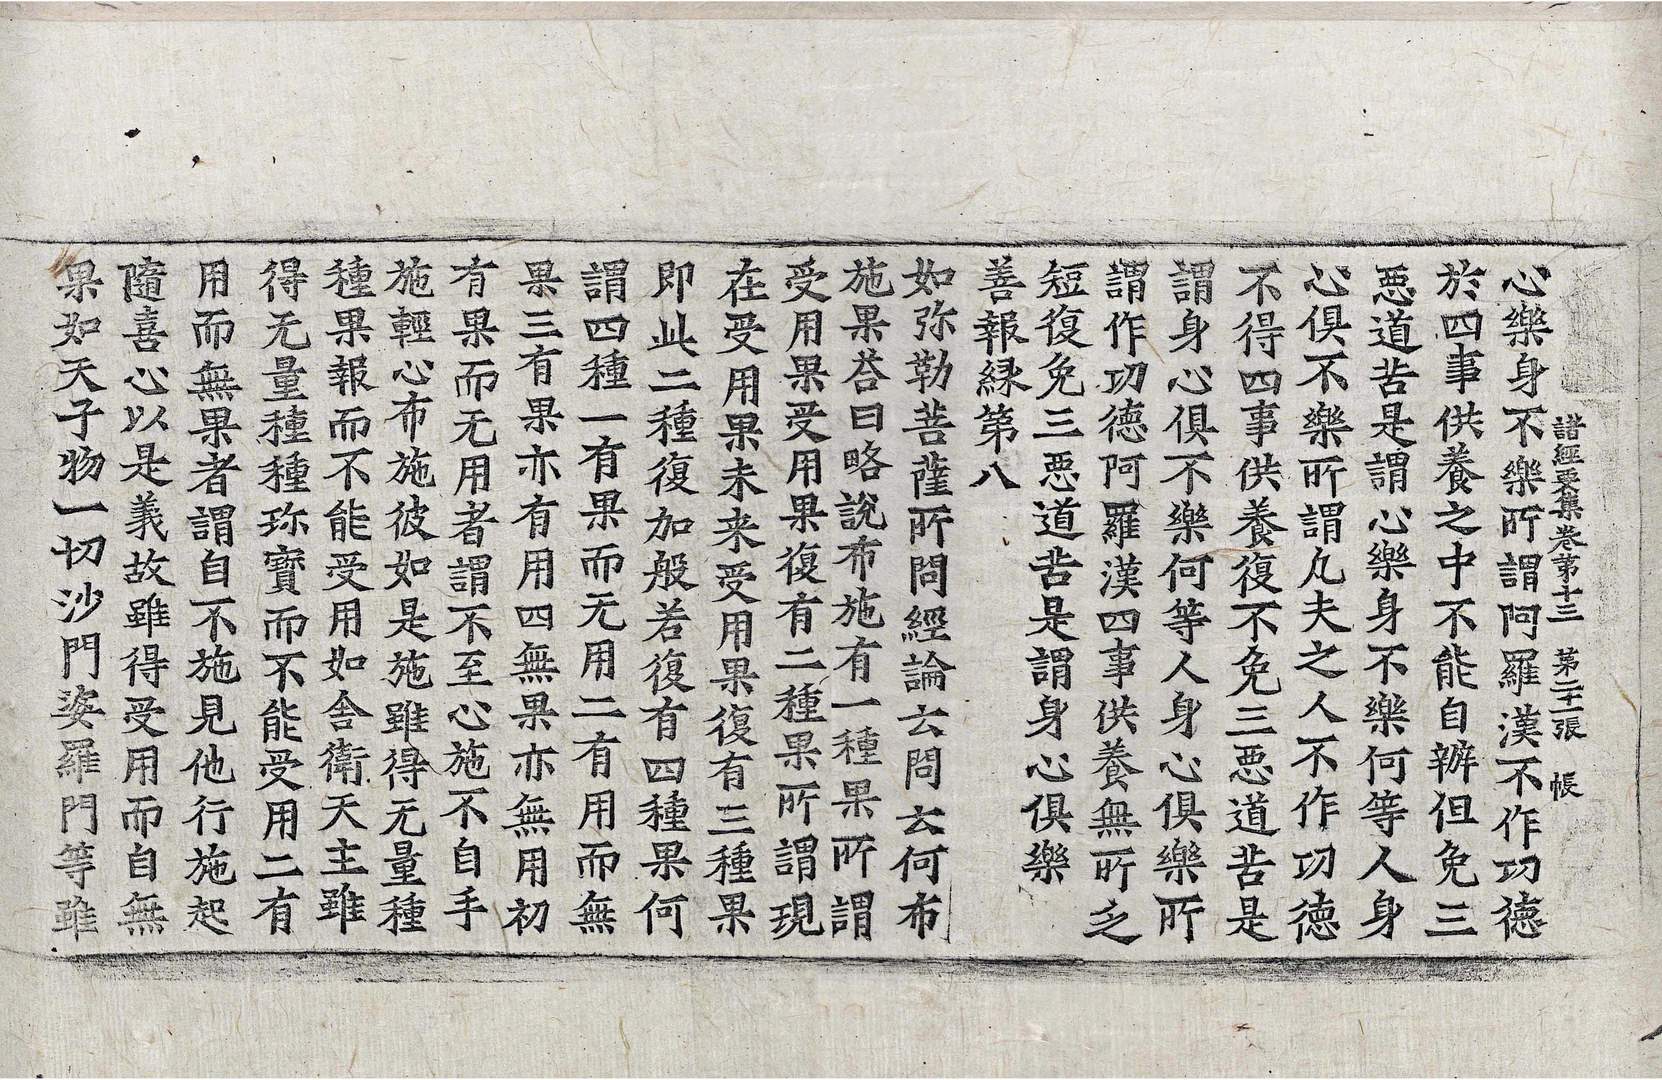 諸經要集卷第十三 第二十一張 帳
心樂身不樂所謂阿羅漢不作功德
於四事供養之中不能自辦但免三
惡道苦是謂心樂身不樂何等人身
心俱不樂所謂凡夫之人不作功德
不得四事供養復不免三惡道苦是
謂身心俱不樂何等人身心俱樂所
謂作功德阿羅漢四事供養無所之
短復免三惡道苦是謂身心俱樂
善報緣第八
如弥勒菩薩所問經論云問云何布
施果荅曰略說布施有一種果所謂
受用果受用果復有二種果所謂現
在受用果未来受用果復有三種果
即此二種復加般若復有四種果何
謂四種一有果而无用二有用而無
果三有果亦有用四無果亦無用初
有果而无用者謂不至心施不自手
施輕心布施彼如是施雖得无量種
種果報而不能受用如舍衛天主雖
得无量種種珎寶而不能受用二有
用而無果者謂自不施見他行施起
隨喜心以是義故雖得受用而自無
果如天子物一切沙門婆羅門等雖